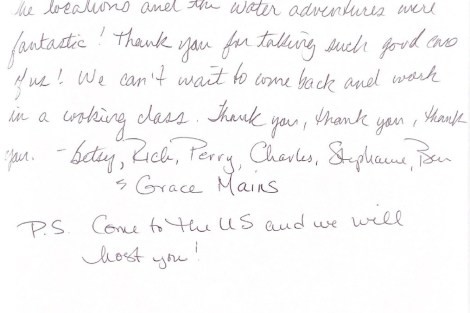 the locations and the water adventures were
fantastic! Thank you for taking such good care
of us! We can't wait to come back and work
in a cooking class. Thank you, thank you, thank
you. - Betsy, Rich, Perry, Charles, Stephanie, Ben
& Grace Mains
P.S. Come to the US and we will
host you!